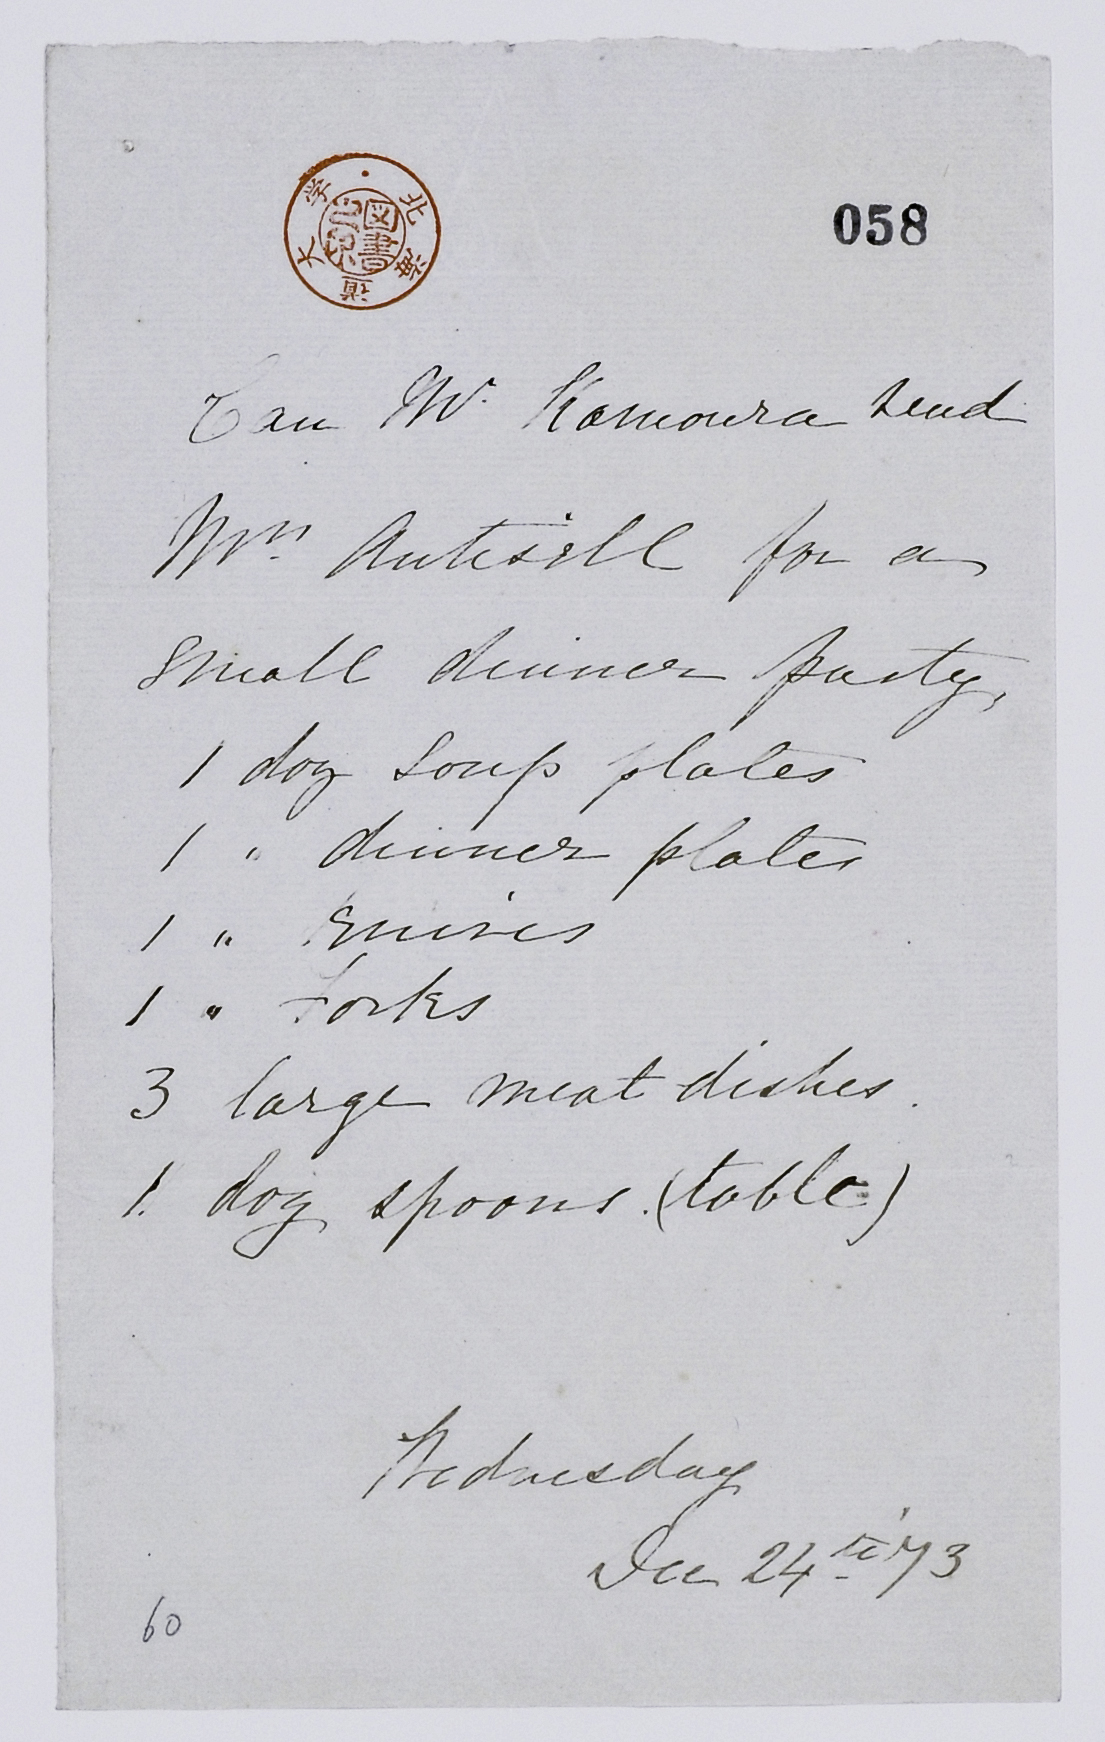 北海道大学
図書
058
Can Mr. Kamoura send
Mrs. Antisell for a
small dinner party,
1 doz soup plates
1 " dinner plates
1 " Knives
1 " Forks
3 large meat dishes.
1. doz spoons. (table)
Wednesday
Dec 24th '73
60